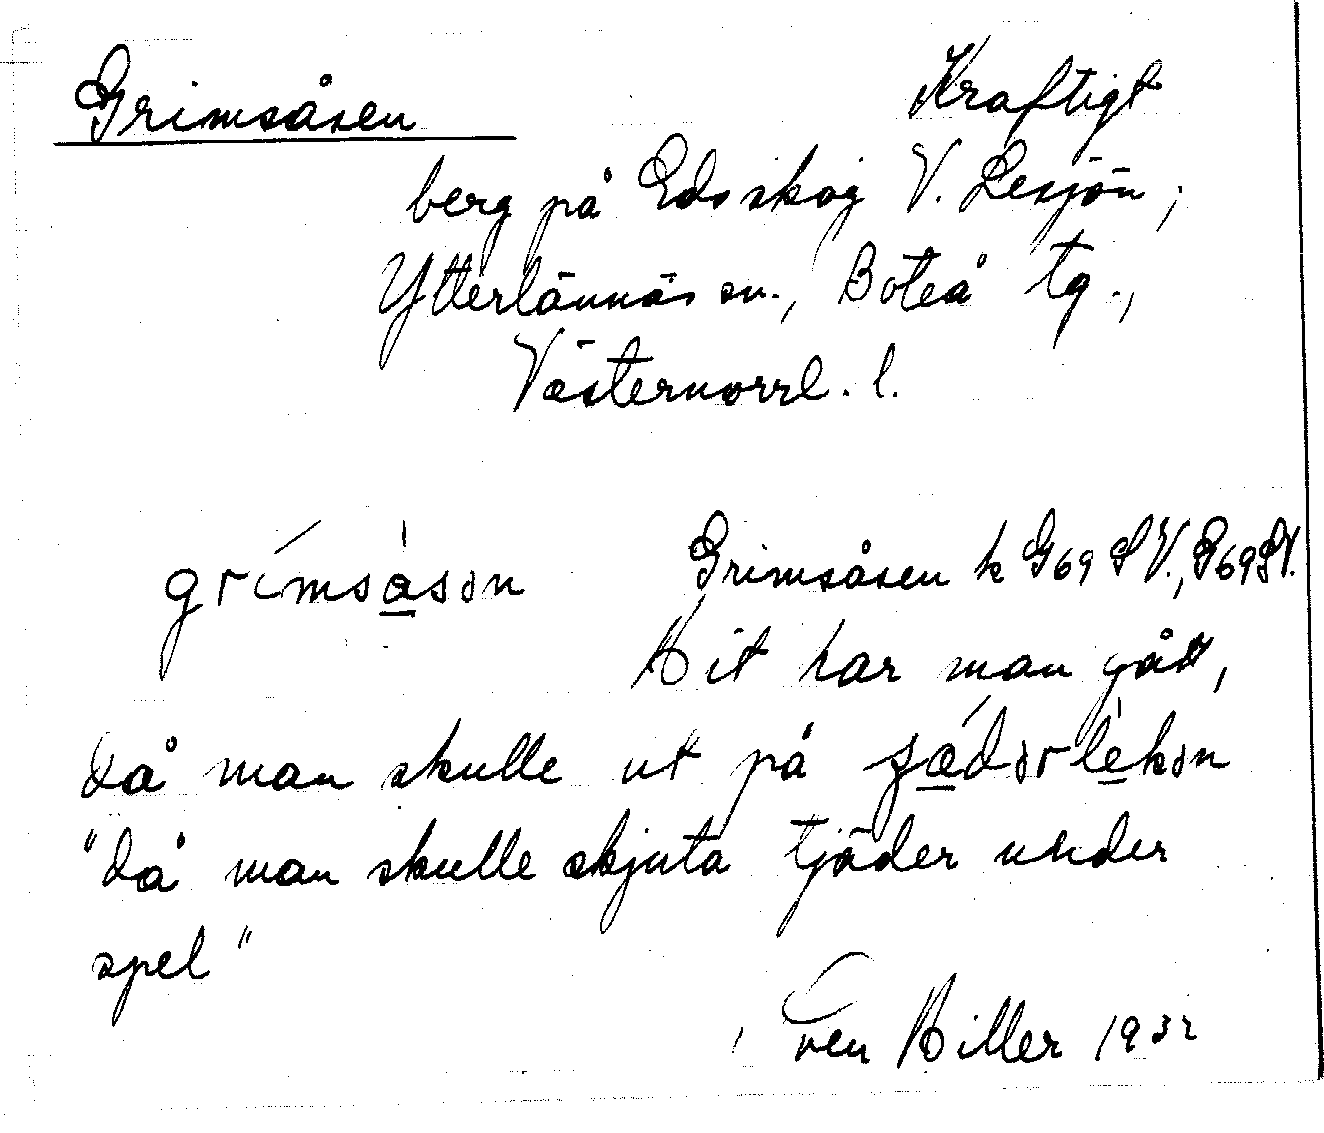 Grimsåsen Kraftigt
berg på Edsskog V. Lesjön,
Ytterlännäs sn., Boteå tg.,
Västernorrl. l.
grímsàsən Grimsåsen k G69 SV., G69 SV.
Hit har man gått,
då man skulle ut på
"då man skulle skjuta tjäder under
spel"
Sven Hiller 1932